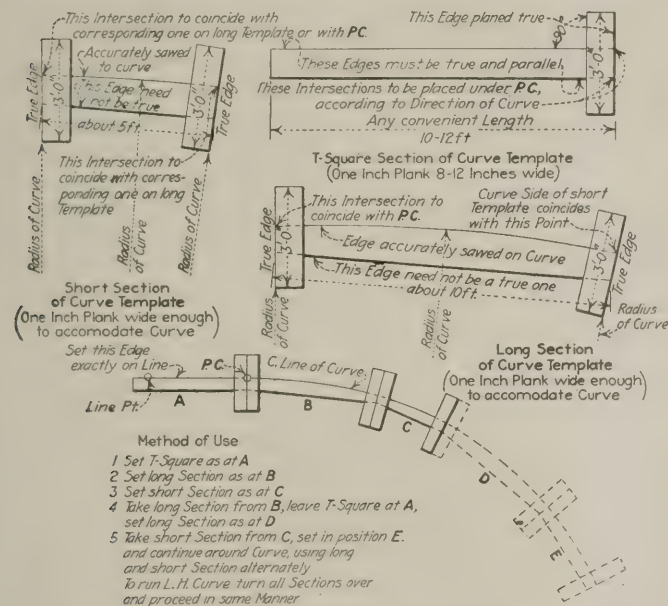 This Intersection to coincide with
corresponding one on long Template or with P.C.
Accurately sawed
to curve
This Edge need
not be true
about 5ft.
True Edge
3'-0"
3'-0"
True Edge
This Intersection to
coincide with corres-
ponding one on long
Template
Radius of Curve
Radius
of Curve
Radius of Curve
Short Section
of Curve Template
(One Inch Plank wide enough
to accomodate Curve)
This Edge planed true
90°
These Edges must be true and parallel
3'-0"
These Intersections to be placed under P.C.,
according to Direction of Curve
Any convenient Length
10-12ft
T-Square Section of Curve Template
(One Inch Plank 8-12 Inches wide)
This Intersection to
coincide with P.C.
Curve Side of short
Template coincides
with this Point
True Edge
3'-0"
Edge accurately sawed on Curve
This Edge need not be a true one
about 10ft.
3'-0"
True Edge
Radius
of Curve
Radius
of Curve
Radius
of Curve
Long Section
of Curve Template
(One Inch Plank wide enough
to accomodate Curve)
Set this Edge
exactly on Line
P.C.
C. Line of Curve
Line Pt.
A
B
C
D
E
Method of Use
1 Set T-Square as at A
2 Set long Section as at B
3 Set short Section as at C
4 Take long Section from B, leave T-Square at A,
set long Section as at D
5 Take short Section from C, set in position E.
and continue around Curve, using long
and short Section alternately
To run L.H. Curve turn all Sections over
and proceed in same Manner